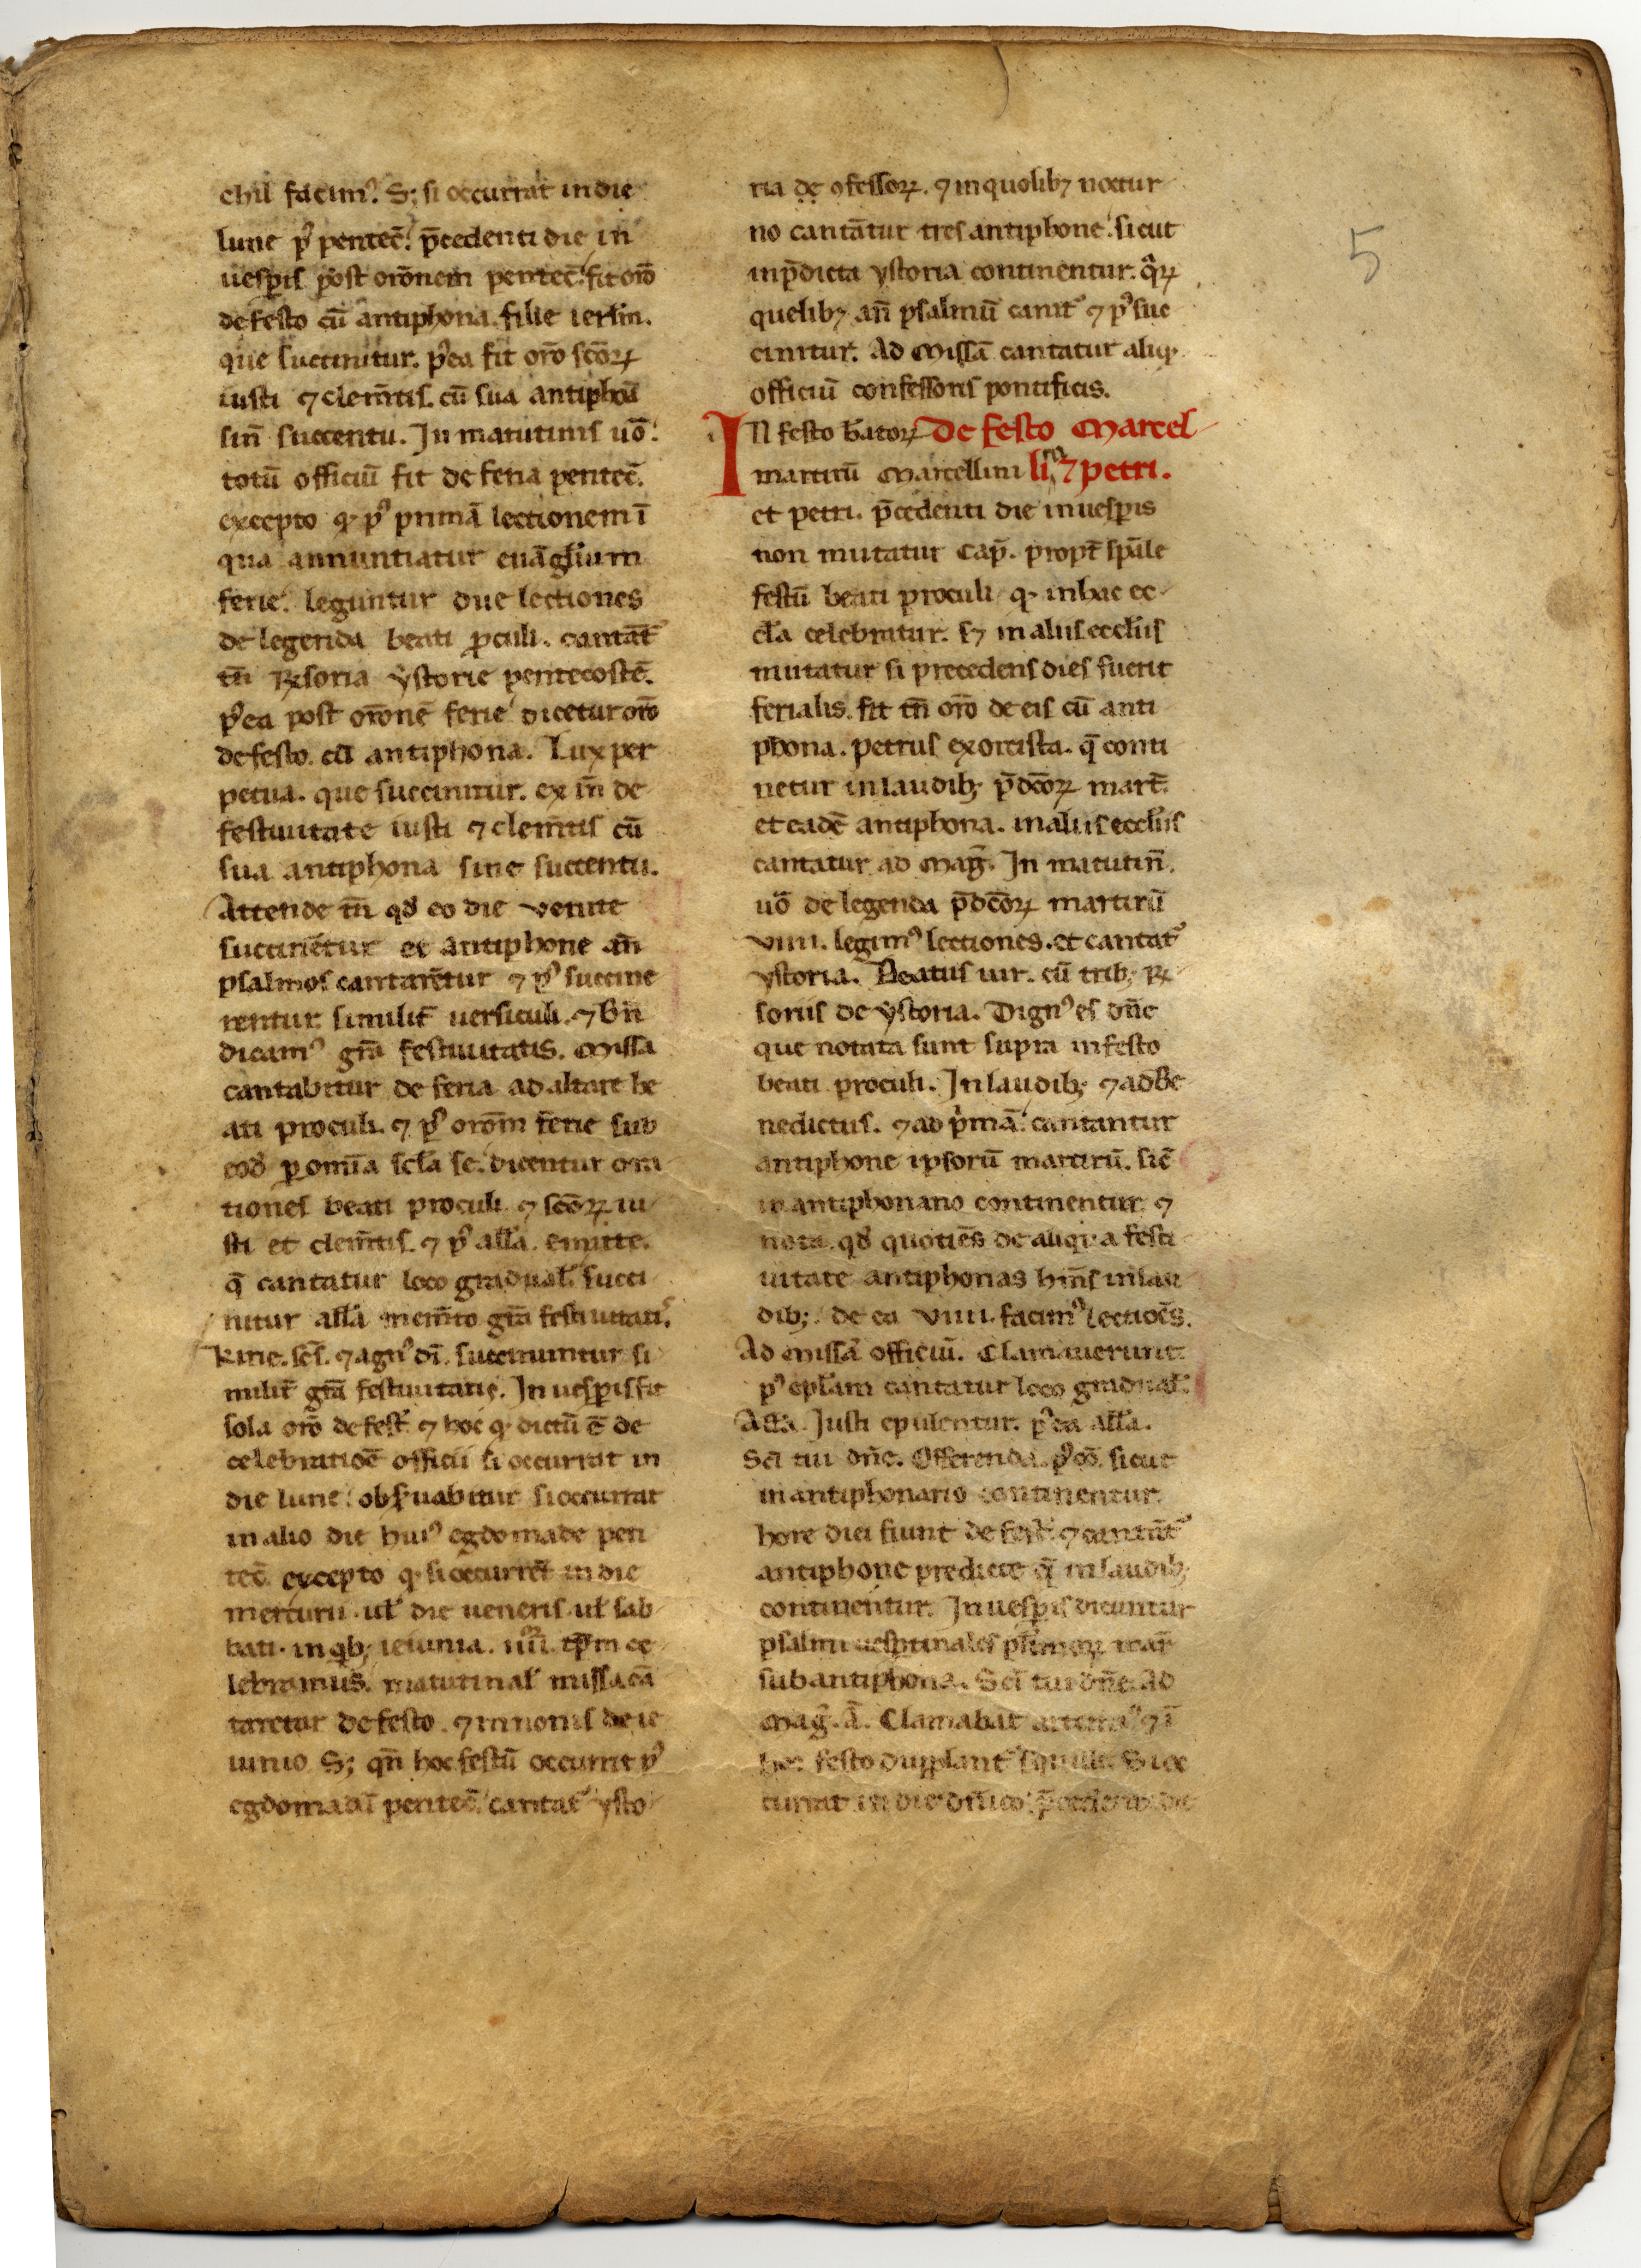 chil facimꝰ. Sꝫ si occurrat in die
lune pꝰ pentec̄. p̄cedenti die in
uesꝑis post or̄onem pentec̄. fit or̄o
de festo cū antiphona. filie ierl̄m.
que succinitur. pꝰea fit or̄o sc̄oꝝ
iusti ⁊ clem̄tis. cū sua antiphōa
sin̄ succentu. In matutinis uō.
totū officiū fit de feria pentec̄.
excepto qͥ pꝰ primā lectionem ī
qua annuntiatur euāgl̄ium
ferie. leguntur due lectiones
de legenda beati ꝓculi. cantāt᷑
tn̄ ꝶsoria ystorie pentecostē.
pꝰea post or̄onē ferie dicetur or̄o
de festo. cū antiphona. Lux per
petua. que succinitur. ex īn de
festiuitate iusti ⁊ clem̄tis cū
sua antiphona sine succentu.
Attende tn̄ qd̄ eo die venite
succinētur et antiphone an̄
psalmos cantarētur ⁊ pꝰ succine
rentur. similit᷑ uersiculi. ⁊ bn̄
dicamꝰ gr̄a festiuitatis. Missa
cantabitur de feria ad altare be
ati proculi. ⁊ pꝰ orōm ferie sub
eod̄ ꝑ om̄ia scl̄a sc̄. dicentur ora
tiones beati proculi ⁊ sc̄oꝝ iu
sti et clem̄tis. ⁊ pꝰ all̄a. emitte.
q̄ cantatur loco gradual̄. succi
nitur all̄a mem̄to gr̄a festiuitatꝭ.
Kirie. sc̄s. ⁊ agnꝰ dī. succinuntur si
milit᷑ gr̄a festiuitatis. In uesꝑis fit
sola or̄o de fest᷑. ⁊ hoc qͥ dictū ē de
celebratiōe officii si occurrat in
die lune. obẜuabitur si occurrat
in alio die huiꝰ egdomade pen
tec̄. excepto qͥ si occurrēt in die
mercurii. ul̄ die ueneris. ul̄ sab
bati. in qͥbꝫ ieiunia. iiiioꝝ tp̄m ce
lebramus. matutinal̄ missa cā
taretur de festo. ⁊ in nonis de ie
iunio Sꝫ qn̄ hoc festū occurrit pꝰ
egdomadā pentec̄. cantat᷑ ysto
ria de ꝯfessoꝝ. ⁊ in quolibꝫ noctur
no cantātur tres antiphone. sicut
in p̄dicta ystoria continentur. qͣꝝ
quelibꝫ an̄ psalmū canit᷑ ⁊ pꝰ suc
cinitur. Ad Missā cantatur aliqͥ
officiū confessoris pontificis.
IN festo b̄atoꝝ De festo Marcel
martirū Marcellini lini ⁊ petri.
et petri. p̄cedenti die in uesꝑis
non mutatur Cap̄. propt᷑ sp̄ale
festū beati proculi qͥ in hac ec
cl̄a celebratur. sꝫ in aliis eccl̄iis
mutatur si precedens dies fuerit
ferialis. fit tn̄ or̄o de eis cū anti
phona. petrus exorcista. q̄ conti
netur in laudibꝫ p̄dc̄oꝝ mart᷑.
et eadē antiphona. in aliis eccl̄iis
cantatur ad Maḡ. In matutin̄.
uō de legenda p̄dc̄oꝝ martirū
viiii. legimꝰ lectiones. et cantat᷑
ystoria. Beatus uir. cū tribꝫ ꝶ
soriis de ystoria. Dignꝰ es dn̄e
que notata sunt supra in festo
beati proculi. In laudibꝫ ⁊ ad Be
nedictus. ⁊ ad pͥmā. cantantur
antiphone ipsorū martirū. sic̄
in antiphonario continentur. ⁊
nota. qd̄ quotiēs de aliqua festi
uitate antiphonas hm̄s in lau
dibꝫ. de ea viiii. facimꝰ lectiōes.
Ad Missā officiū. Clamauerunt.
pꝰ epl̄am cantatur loco gradual̄.
All̄a. Iusti epulentur. pꝰea all̄a.
Sc̄i tui dn̄e. Offerenda. pꝰ cō. sicut
in antiphonario continentur.
hore diei fiunt de fest᷑. ⁊ cantāt᷑
antiphone predicte q̄ in laudibꝫ
continentur. In uesꝑis dicuntur
psalmi uesꝑtinales pl̄imoꝝ mar᷑
sub antiphona. Sc̄i tui dn̄e. Ad
Maḡ. ā. Clamabat ⁊ ī
hoc festo dupplant᷑ squille. Si oc
currat in die dn̄ico. p̄cedenti die
5